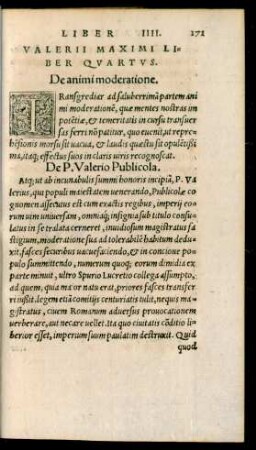 LIBER IIII. 171
VALERII MAXIMI LI-
BER QVARTVS.
De animi moderatione.
TRansgredier ad saluberrimā partem ani
mi moderationē, quæ mentes nostras im
potētiæ, & temeritatis in cursu transuer
sas ferri nō patitur, quo euenit, ut repre
hēsionis morsu sit uacua, & laudis quæstu sit opulētissi
ma, itaq; effectus suos in claris uiris recognoscat.
De P. Valerio Publicola.
Atq; ut ab incunabulis summi honoris incipiā, P. Va
lerius, qui populi maiestatem uenerando, Publicolæ co
gnomen assecutus est cum exactis regibus, imperij eo
rum uim uniuersam, omniaq; insignia sub titulo consu
latus in se tralata cerneret, inuidiosum magistratus fa
stigium, moderatione sua ad tolerabilē habitum dedu
xit, fasces securibus uacuefaciendo, & in concione po
pulo summittendo, numerum quoq; eorum dimidia ex
parte minuit, ultro Spurio Lucretio collega assumpto,
ad quem, quia maior natu erat, priores fasces transfer
ri iussit. legem etiā comitijs centuriatis tulit, nequis ma
gistratus, ciuem Romanum aduersus prouocationem
uerberare, aut necare uellet. ita quo ciuitatis cōditio li
berior esset, imperium suum paulatim destruxit. Quid
quod